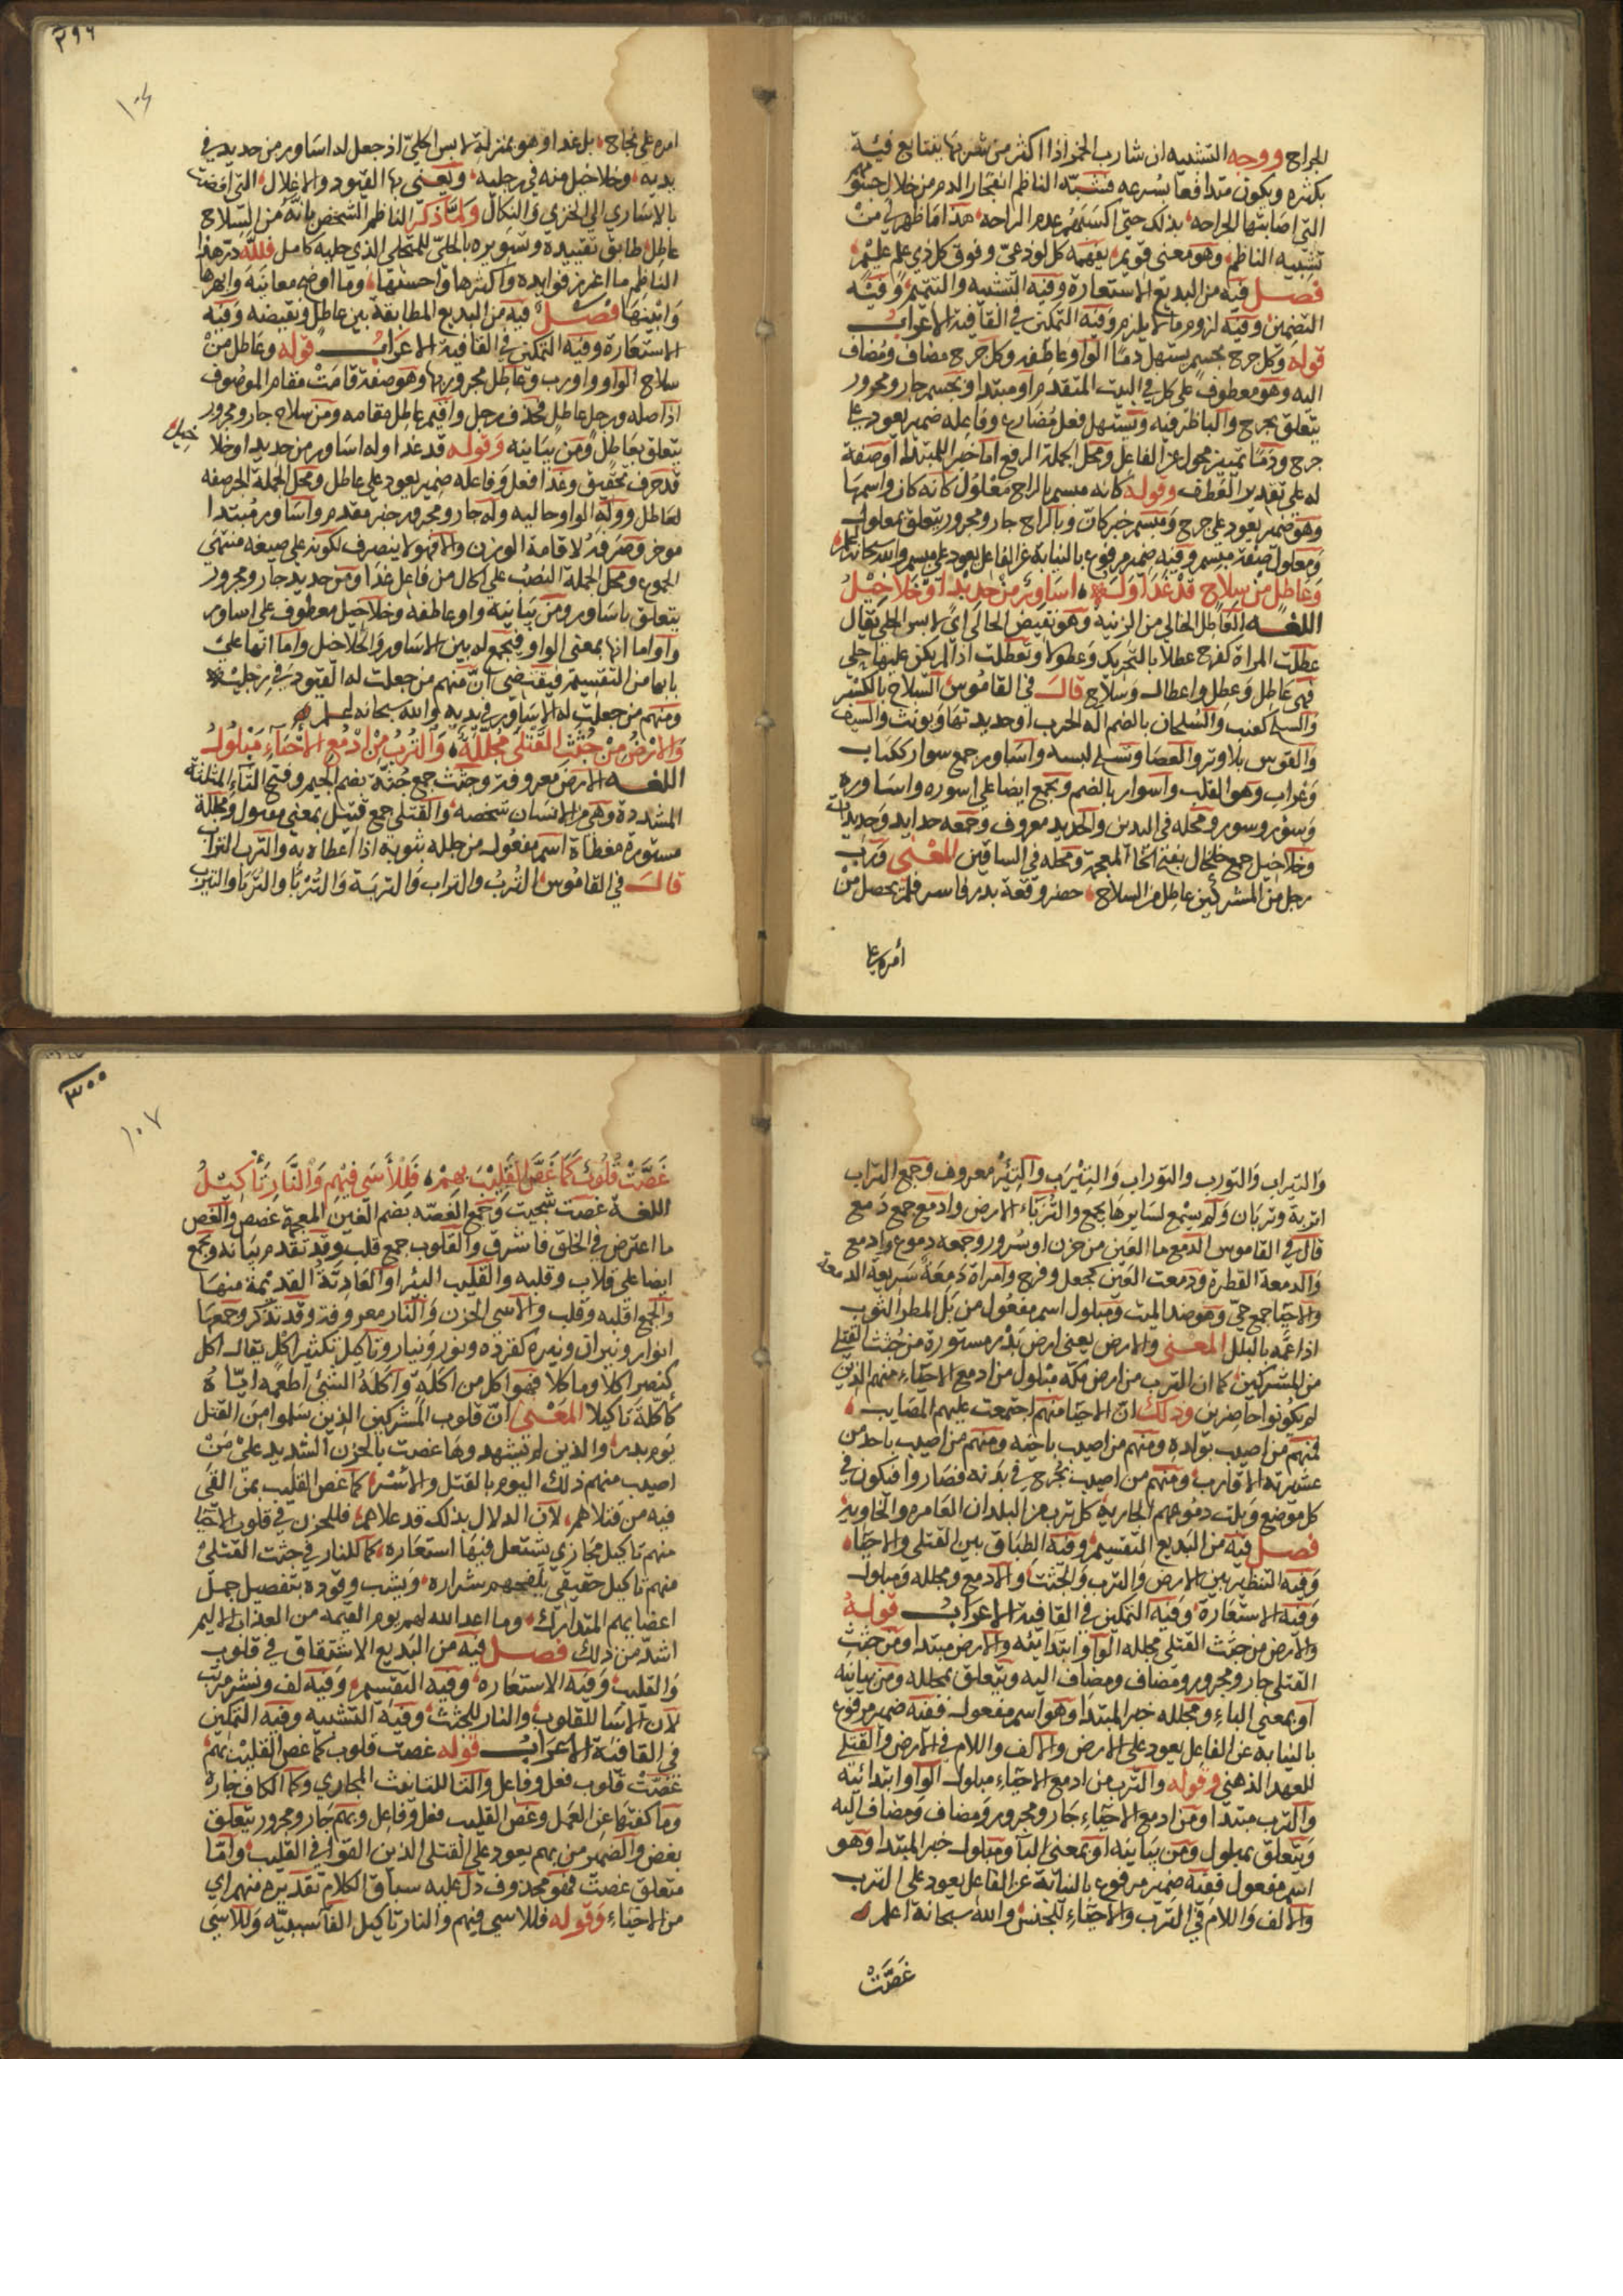 للجراح ووجه التشبيه ان شارب الخمر اذا اكثر من شربها يتتابع قيئه
بكثره ويكون متدافعا بسرعه فشبه الناظم انفجار الدم من خلال جسومهم
التي اصابتها الجراحه بذلك حتى اكسبتهم عدم الراحه هذا ما ظهر لي من
تشبيه الناظم وهو معنى قويم يفهمه كل لوذعيّ وفوق كل ذي علم عليم
فصل فيه من البديع الاستعارة وفيه التشبيه والتتميم وفيه
التضمين وفيه لزوم ما لا يلزم وفيه التمكين في القافية الاعراب
قوله وكل جرح بجسم يستهل دما الواو عاطفه وكل جرح مضاف ومضاف
اليه وهو معطوف على كل في البيت المتقدم او مبتدا وبجسم جار ومجرور
يتعلق بجرح والبا ظرفيه ويستهل فعل مضارع وفاعله ضمير يعود على
جرح ودما تمييز محول عن الفاعل ومحل الجملة الرفع اما خبر للمبتدا او صفة
له على تقدير العطف وقوله كانه مبسم بالراح معلول كانه كان واسمها
وهو ضمير يعود على جرح ومبسم خبر كان وبالراح جار ومجرور يتعلق بمعلول
ومعلول صفة مبسم وفيه ضمير مرفوع بالنيابة عن الفاعل يعود على مبسم والله سبحانه اعلم
وعاطل من سلاح قد غدا وله اساور من حديد او خلاخيل
اللغه العاطل الخالي من الزينة وهو نقيض الحالي اي لابس الحلي يقال
عطلت المراة كفرح عطلا بالتحريك وعطولا وتعطلت اذا لم يكن عليها حلي
فهي عاطل وعطل واعطال وسلاح قال في القاموس السلاح بالكسر
والسلح كعنب والسلحان بالضم آلة الحرب او حديدتها ويونث والسيف
والقوس بلا وتر والعصا وتسلح لبسه واساور جمع سوار ككتاب
وغراب وهو القلب واسوار بالضم ويجمع ايضا على اسوره واساورة
وسؤر وسور ومحله في اليدين والحديد معروف وجمعه حدايد وحديدات
وخلاخيل جمع خلخال بفتح الخا المعجمة ومحله في الساقين المعنى ورب
رجل من المشركين عاطل من السلاح حضر وقعة بدر فاسر فلم يحصل من
أمره على
٢٩٦
امره على نجاح بل غدا وهو بمنزلة لابس الحليّ اذ جعل له اساور من حديد في
يديه وخلاخيل منه في رجليه ويعني بها القيود والاغلال التي افضت
بالاساري الي الخزي والنكال ولما ذكر الناظم الشخص بانه من السلاح
عاطل طابق تقييده وتسويره بالحليّ للمتحلى الذي حليه كامل فللّه در هذا
الناظم ما اغزر فوايده واكثرها واحسنها وما اوضح معانيه وابهرها
وابينها فصل فيه من البديع المطابقة بين عاطل ونقيضه وفيه
الاستعارة وفيه التمكين في القافية الاعراب قوله وعاطل من
سلاح الواو واو رب وعاطل مجرور بها وهو صفة قامت مقام الموصوف
اذ اصله ورجل عاطل فحذف رجل واقيم عاطل مقامه ومن سلاح جار ومجرور
يتعلق بعاطل ومن بيانيه وقوله قد غدا وله اساور من حديد او خلا
خيل
قد حرف تحقيق وغدا فعل وفاعله ضمير يعود على عاطل ومحل الجملة الجر صفه
لعاطل ووله الواو حاليه وله جار ومجرور خبر مقدم واساور مبتدا
موخر وصرفه لاقامة الوزن والا فهو لا ينصرف لكونه على صيغه منتهى
الجموع ومحل الجملة النصب على الحال من فاعل غدا ومن حديد جار ومجرور
يتعلق باساور ومن بيانيه واو عاطفه وخلاخيل معطوف على اساور
واو اما انها بمعنى الواو فيجمع له بين الاساور والخلاخل واما انها على
بابها من التقسيم فيقتضي أن منهم من جعلت له القيود في رجليه
ومنهم من جعلت له الاساور في يديه والله سبحانه اعلم
والارض من جثث القتلى مجللة والترب من ادمع الاحياء مبلول
اللغه الارض معروفة وجثث جمع جثة بضم الجيم وفتح الثاء المثلثة
المشددة وهي من الانسان شخصه والقتلى جمع قتيل بمعنى مقتول ومجللة
مستورة مغطاة اسم مفعول من جلله بثوبه اذا غطاه به والترب التراب
قال في القاموس الترب والتراب والتربة والتربا والترباء والتيرب
والتيراب والتورب والتوراب والتيرب والتئر معروف وجمع التراب
اتربة وتربان ولم يسمع لسايرها بجمع والترباء الارض وادمع جمع دمع
قال في القاموس الدمع ما العين من حزن او سرور وجمعه دموع وادمع
والدمعة القطرة ودمعت العين كجعل وفرح وامراة دمعة سريعة الدمعة
والاحيا جمع حيّ وهو ضد الميت ومبلول اسم مفعول من بل المطر الثوب
اذا عمه بالبلل المعنى والارض يعنى ارض بدر مستورة من جثث القتلى
من المشركين كما ان الترب من ارض مكة مبلول من ادمع الاحياء منهم الذين
لم يكونوا حاضرين وذلك ان الاحيا منهم اجتمعت عليهم المصايب
فمنهم من اصيب بولده ومنهم من اصيب باخيه ومنهم من اصيب باحد من
عشيرته الاقارب ومنهم من اصيب بجرح في بدنه فصاروا يبكون في
كل موضع وبلت دموعهم الجارية كل ترب من البلدان العامره والخاوية
فصل فيه من البديع التقسيم وفيه الطباق بين القتلى والاحياء
وفيه التنظير بين الارض والترب والجثث والادمع ومجلله ومبلول
وفيه الاستعارة وفيه التمكين في القافية الاعراب قوله
والارض من جثث القتلى مجلله الواو ابتدائيه والارض مبتدا ومن جثث
القتلى جار ومجرور ومضاف ومضاف اليه ويتعلق بمجلله ومن بيانيه
او بمعنى الباء ومجلله خبر المبتدا وهو اسم مفعول ففيه ضمير مرفوع
بالنيابه عن الفاعل يعود على الارض والالف واللام في الارض والقتلى
للعهد الذهني وقوله والترب من ادمع الاحياء مبلول الواو ابتدائية
والترب مبتدا ومن ادمع الاحياء جار ومجرور ومضاف ومضاف اليه
ويتعلق بمبلول ومن بيانيه او بمعنى البا ومبلول خبر المبتدا وهو
اسم مفعول ففيه ضمير مرفوع بالنيابة عن الفاعل يعود على الترب
والالف واللام في الترب والاحياء للجنس والله سبحانه اعلم
غصّت
٣٠٠
١٠٧
غصّت قلوب كما غصّ القليب بهم فللأسى فيهم والنار تأكيل
اللغة غصت شجيت وجمع الغصه بضم الغين المعجمة غصص والغصص
ما اعترض في الحلق فاشرق والقلوب جمع قلب وقد تقدم بيانه ويجمع
ايضا على قلاب وقلبه والقليب البئر او العادية القديمة منها
والجمع اقلبه وقلب والاسى الحزن والنار معروفة وقد تذكر وجمعها
انوار ونيران ونيره كقرده ونور ونيار وتاكيل تكثير اكل يقال اكل
كنصر اكلا وماكلا فهو اكل من اكلة وآكله الشئ اطعمه ايّاه
كأكله تاكيلا المعنى ان قلوب المشركين الذين سلموا من القتل
يوم بدر والذين لم يشهدوها غصت بالحزن الشديد على من
اصيب منهم ذلك اليوم بالقتل والأسر كما غص القليب بمن القي
فيه من قتلاهم لان الدلال بذلك قد علاهم فللحزن في قلوب الاحيا
منهم تاكيل مجازي يشتعل فيها استعاره كما للنار في جثث القتلى
منهم تاكيل حقيقي يلفحهم شراره ويشب وقوده بتفصيل جمل
اعضايهم المتدارك وما اعد الله لهم يوم القيمه من العذاب الاليم
اشدّ من ذلك فصل فيه من البديع الاشتقاق في قلوب
والقليب وفيه الاستعاره وفيه التقسيم وفيه لف ونشر مرتب
لان الاسا للقلوب والنار للجثث وفيه التشبيه وفيه التمكين
في القافية الاعراب قوله غصت قلوب كما غص القليب بهم
غصّت قلوب فعل وفاعل والتا للتانيث المجازي وكما الكاف جاره
وما كفتها عن العمل وغص القليب فعل وفاعل وبهم جار ومجرور يتعلق
بغص والضمير من بهم يعود على القتلى الذين القوا في القليب وامّا
متعلق غصت فهو محذوف دل عليه سياق الكلام تقديره منهم اي
من الاحياء وقوله فللاسي فيهم والنار تاكيل الفا سببيّه وللاسي